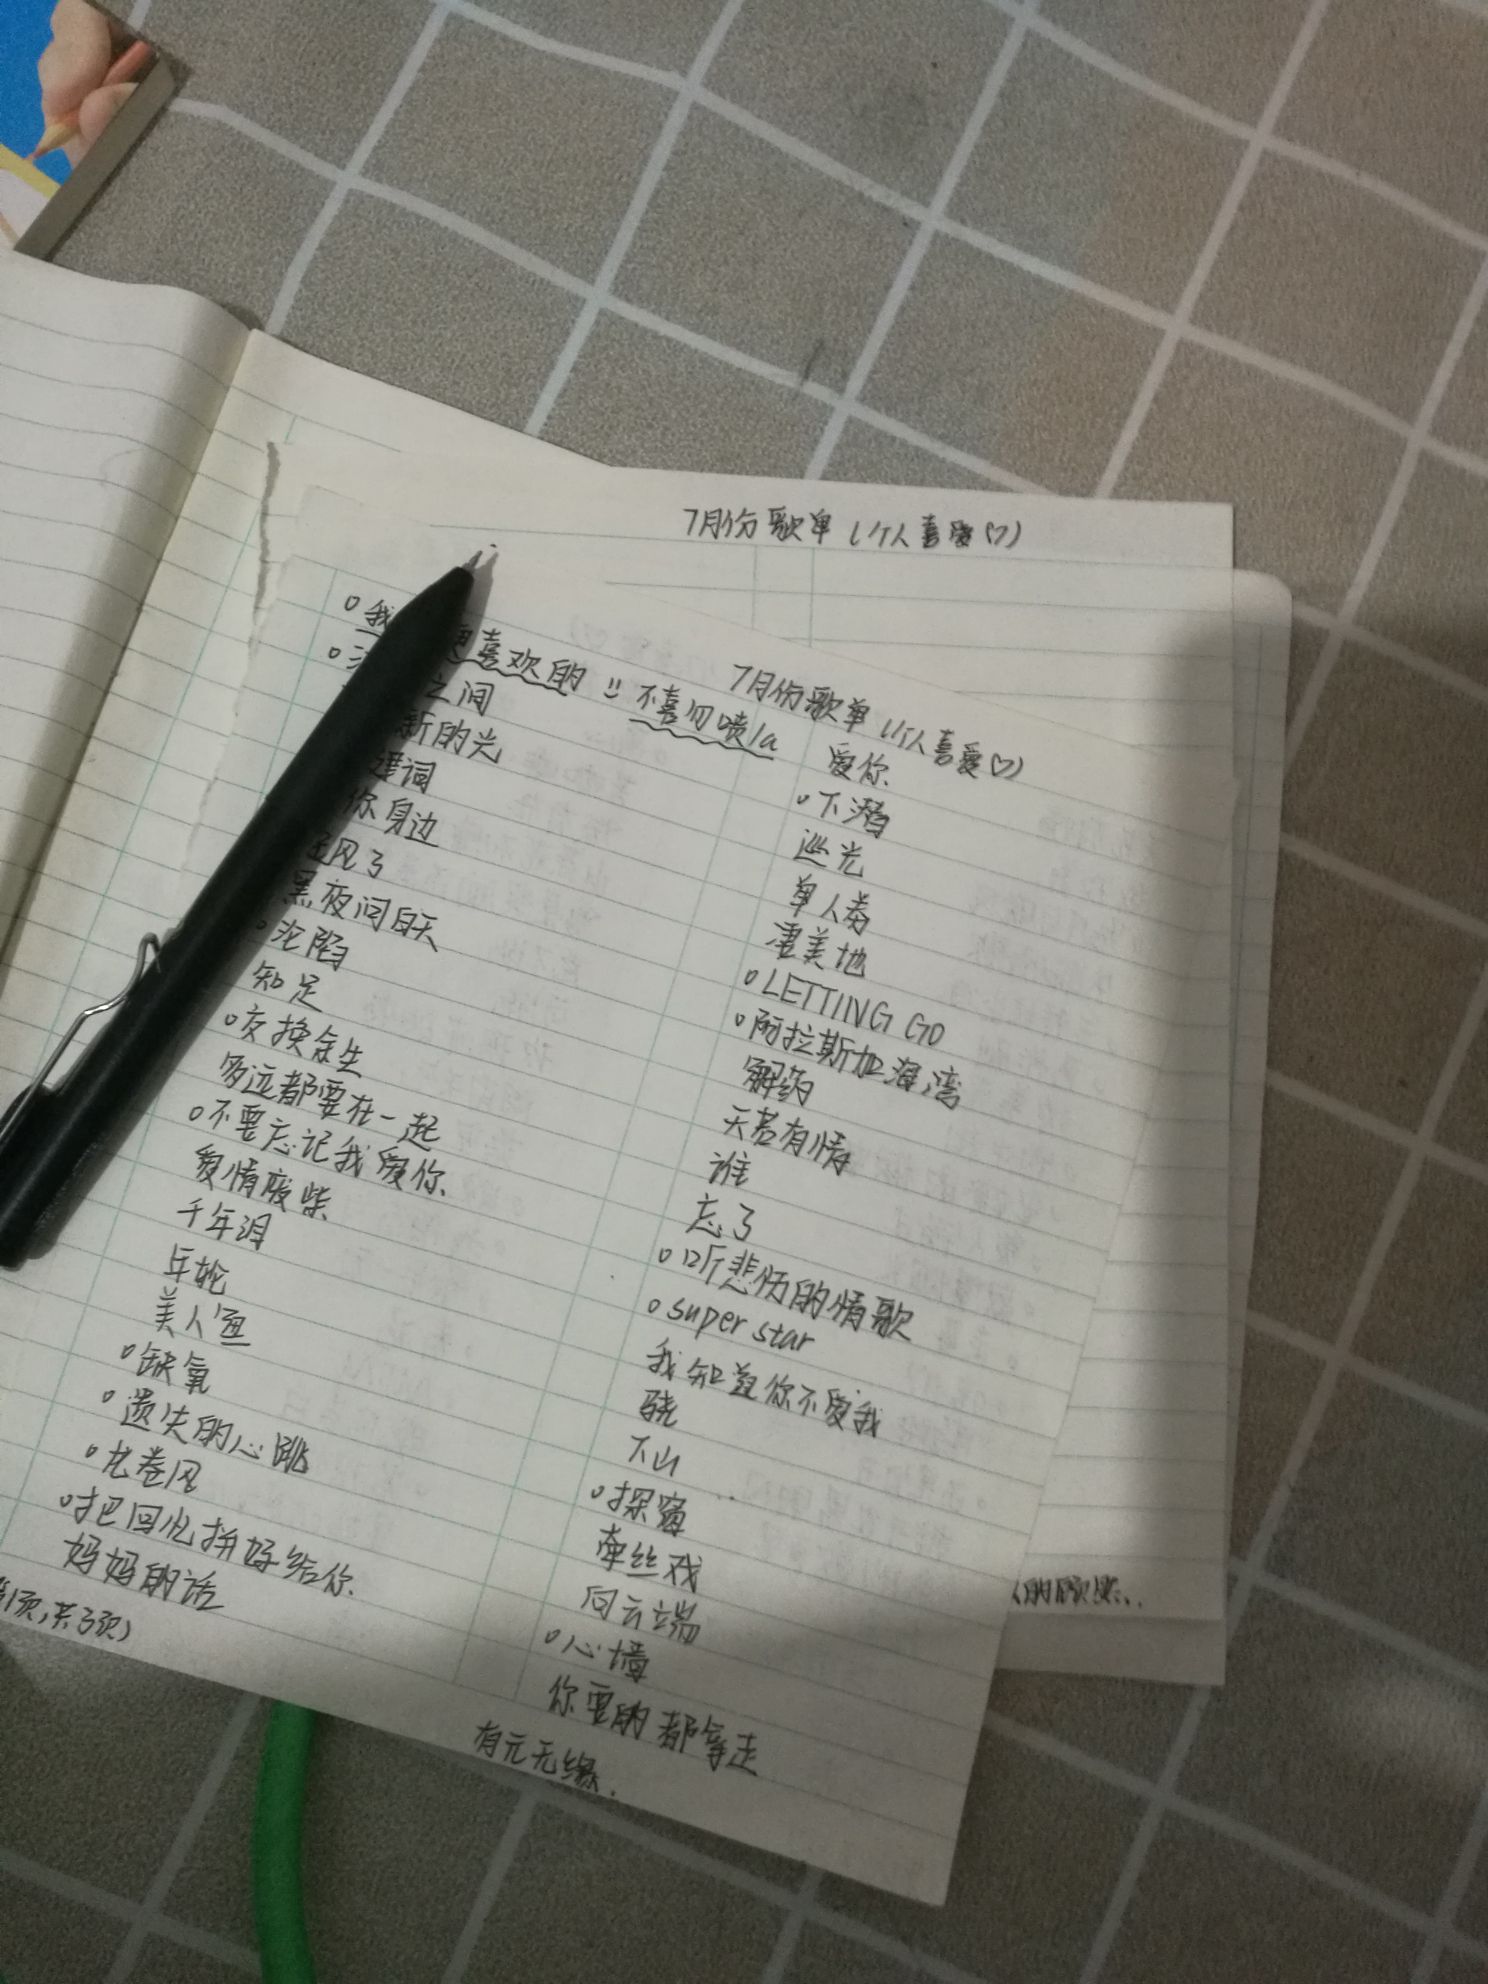 7月份歌单(个人喜爱♡)
7月份歌单(个人喜爱♡)
○我 更喜欢的 不喜勿喷la
之间
新的光
谓词
你身边
起风了
黑夜问白天
○沦陷
知足
○交换余生
多远都要在一起
○不要忘记我爱你
爱情废柴
千年泪
年轮
美人鱼
○缺氧
○遗失的心跳
○龙卷风
○才把回忆拼好给你
妈妈的话
第1页,共3页)
爱你
○下潜
巡光
单人类
凄美地
○LETTING GO
○阿拉斯加海湾
解药
天若有情
谁
忘了
○听悲伤的情歌
○super star
我知道你不爱我
骁
下山
○探窗
牵丝戏
向云端
○心墙
你要的都拿走
有元无缘.